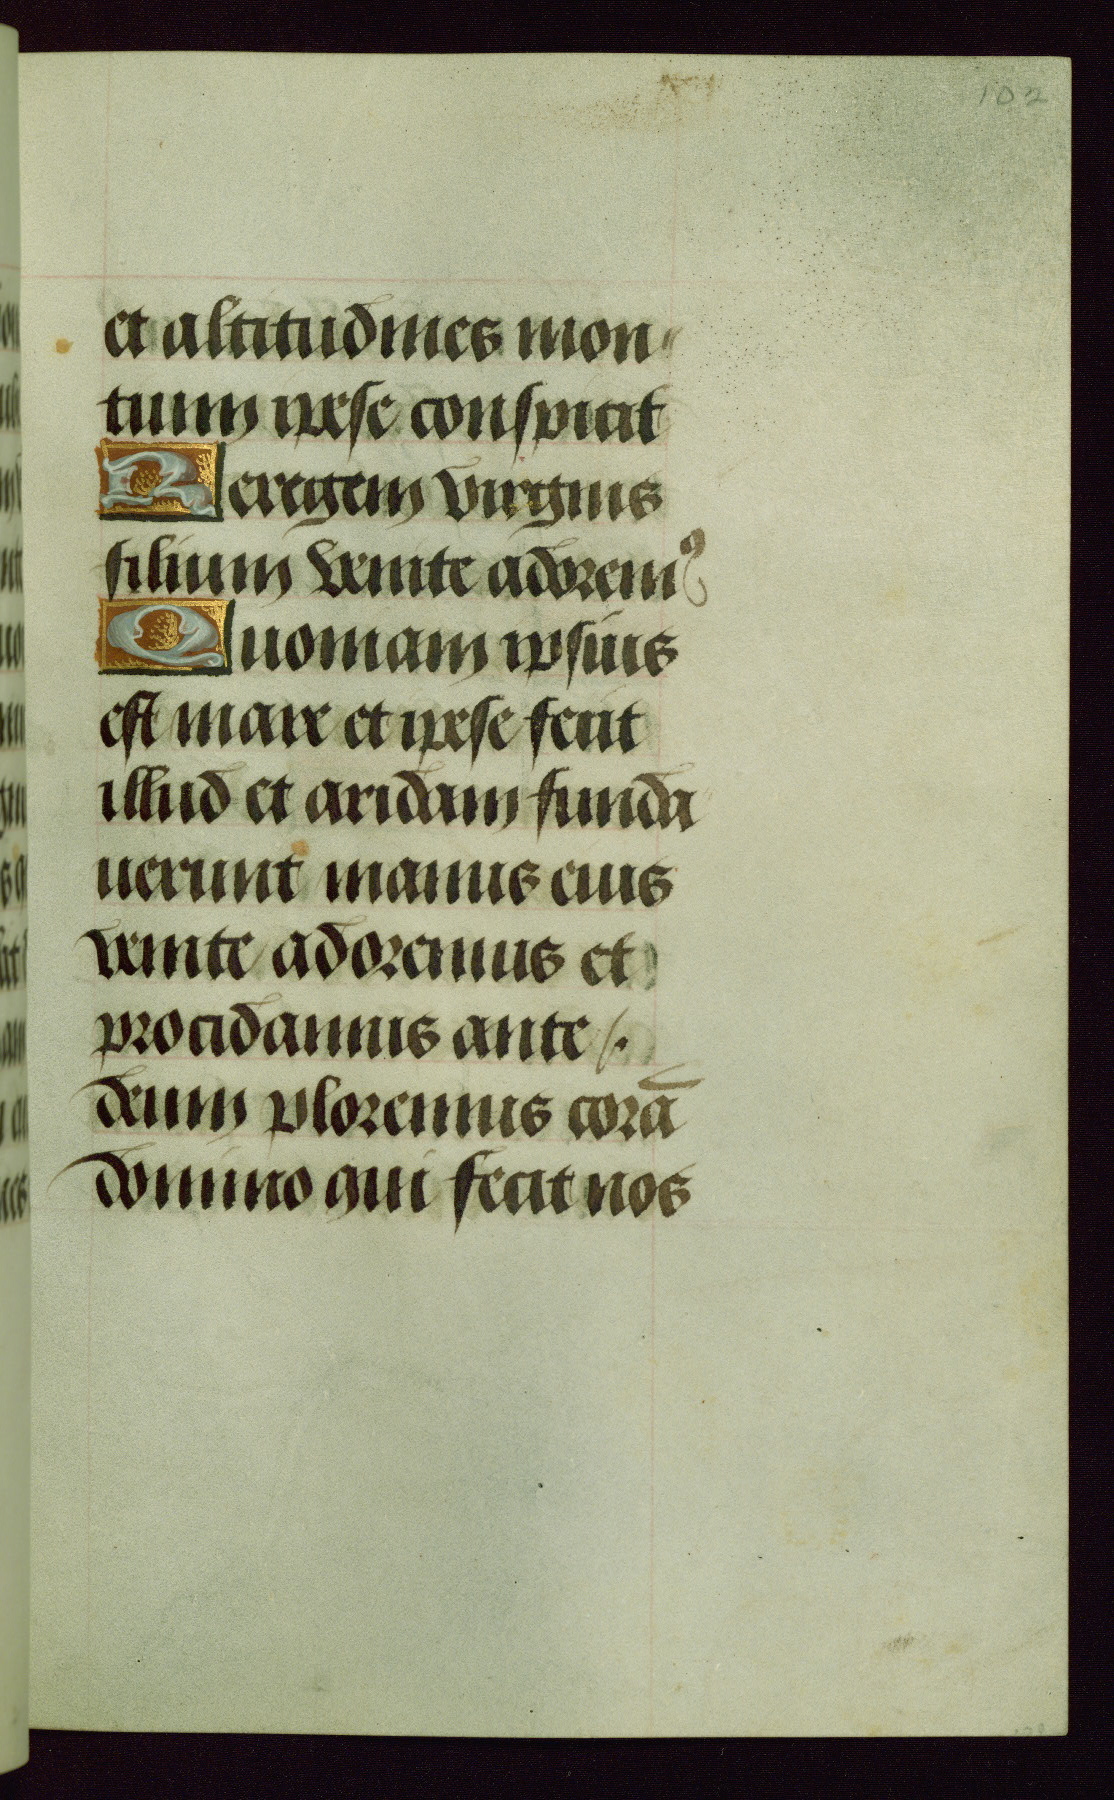 102
et altitudines mon-
tium ipse conspicit
Regem virginis
filium venite adorem⁹
Quoniam ipsius
est mare et ipse fecit
illud et aridam funda
uerunt manus eius
venite adoremus et
procidamus ante /.
deum ploremus corā
domino qui fecit nos